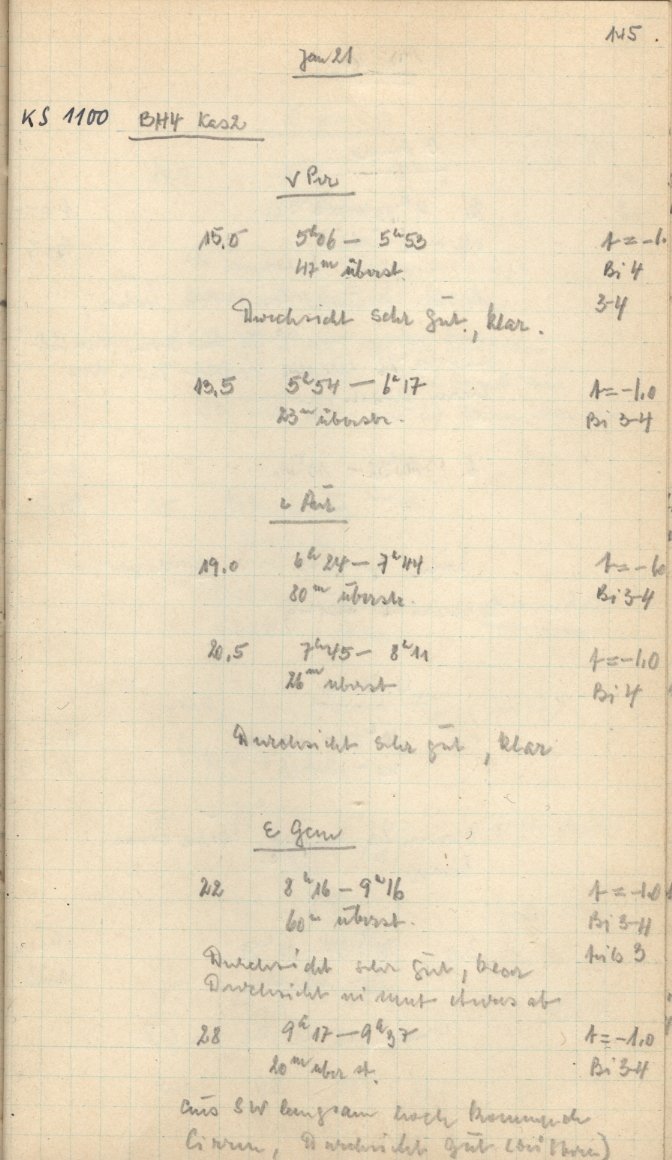 145.
Jan 21
KS 1100 BH4 Kas2
ν Per
15,0 5ʰ06 — 5ʰ53 t = -1.
47ᵐ überst. Bi 4
3-4
Durchsicht sehr gut, klar.
13,5 5ʰ54 — 6ʰ17 t = -1,0
23ᵐ überstr. Bi 3-4
ι Aur
19,0 6ʰ24 — 7ʰ44
80ᵐ überstr. Bi 3-4
20,5 7ʰ45 — 8ʰ11 t = -1,0
26ᵐ überst Bi 4
Durchsicht sehr gut, klar
ε Gem
22 8ʰ16 — 9ʰ16 t = -1,0
60ᵐ überst. Bi 3-4
bis 3
Durchsicht sehr gut, klar
Durchsicht nimmt etwas ab
28 9ʰ17 — 9ʰ37 t = -1,0
20ᵐ überst. Bi 3-4
aus SW langsam hoch kommende
Cirren, Durchsicht gut